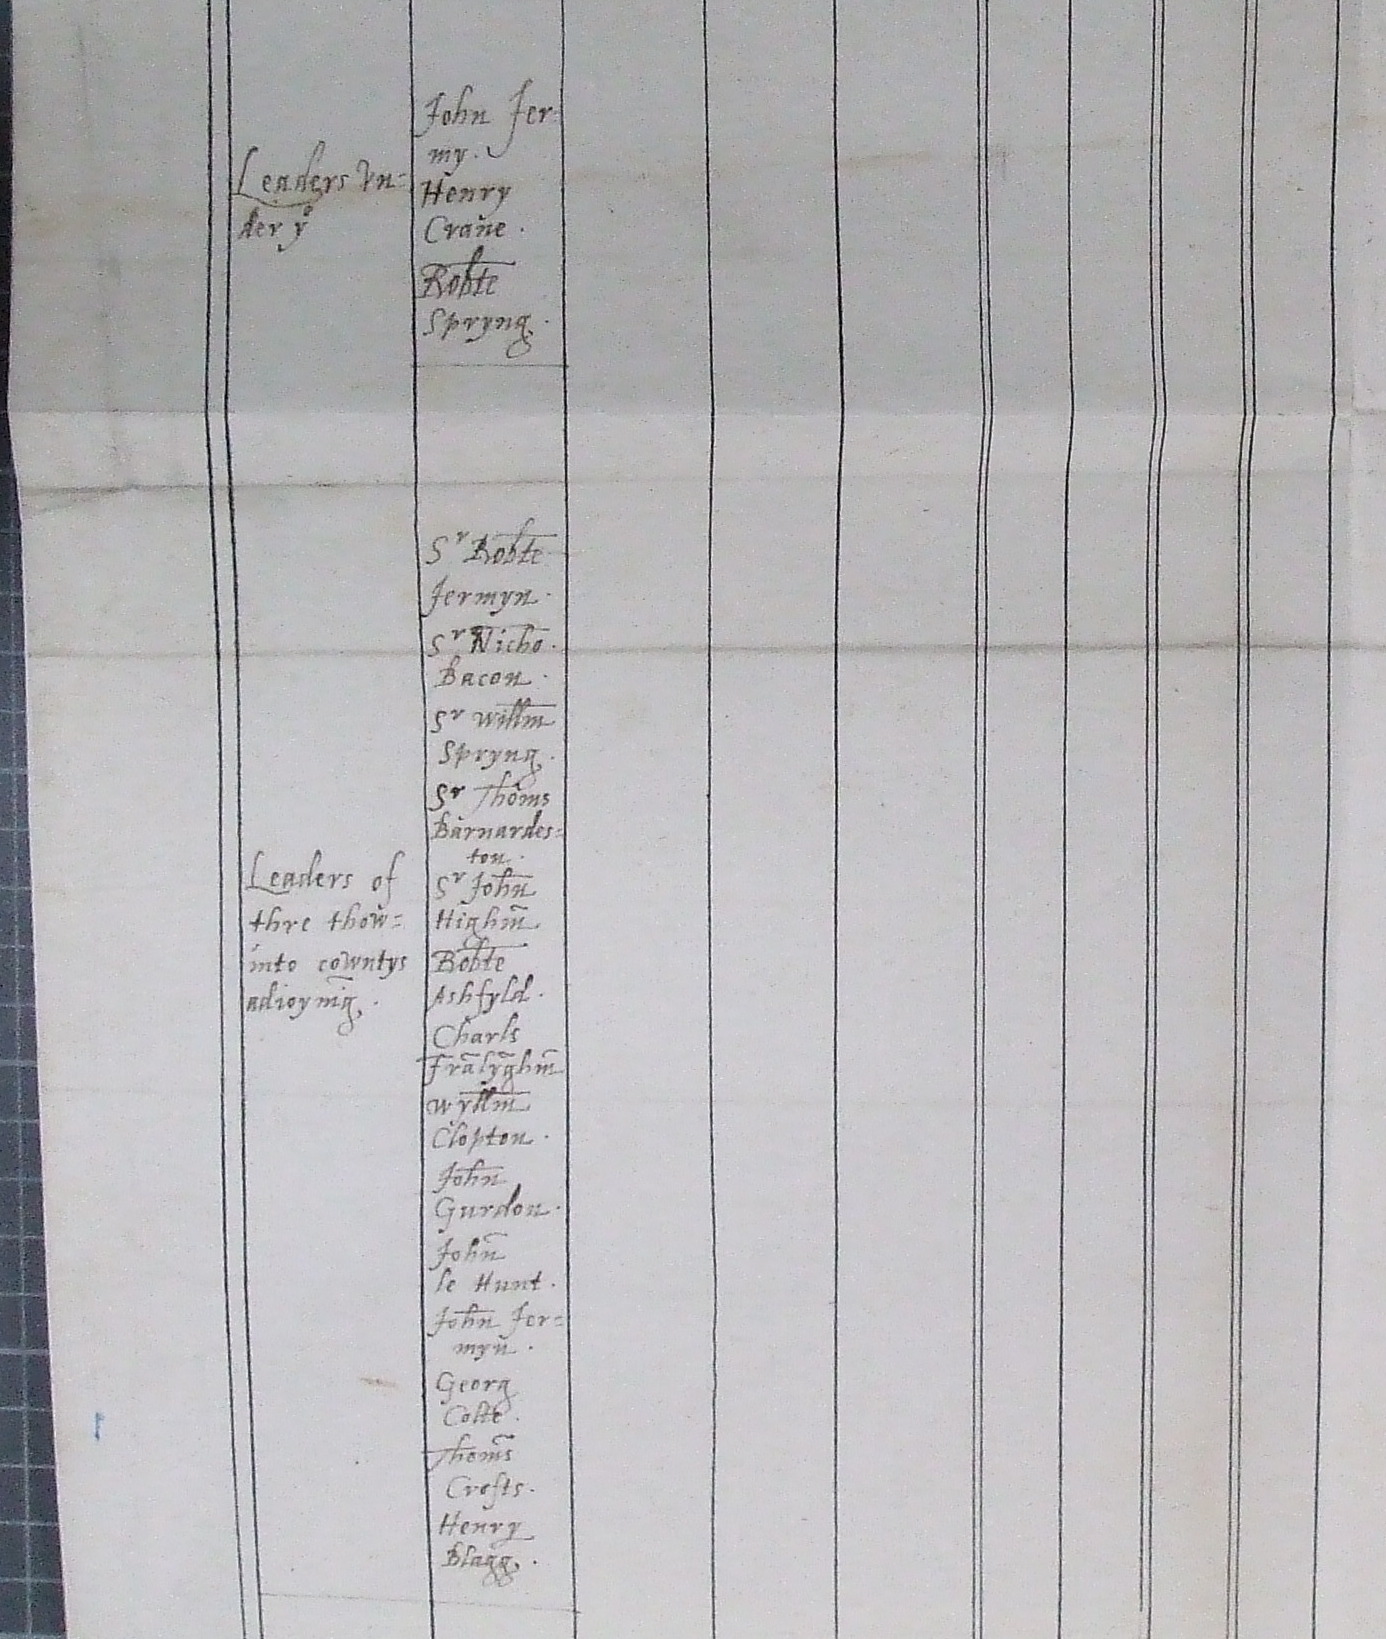 Leaders vn=
der yͤ
John Jer=
my.
Henry
Crane.
Robte
Spryng.
Leaders of
thre thow=
into cowntys
adioynīg.
Sʳ Robte
Jermyn.
Sʳ Nicho.
Bacon.
Sʳ Willm
Spryng.
Sʳ Thoms
Barnardes=
ton.
Sʳ John
Highm̄
Robte
Ashfyld.
Charls
Frālȳghm̄
Wyllm
Clopton.
John
Gurdon.
John
le Hunt.
John Jer=
myn.
Georg
Colte.
Thom̄s
Crofts.
Henry
Blagg.
1